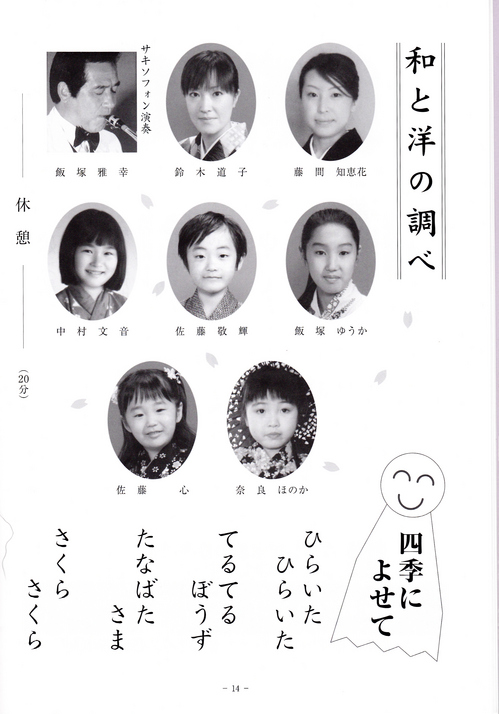 和と洋の調べ
藤間知恵花
鈴木道子
サキソフォン演奏
飯塚雅幸
飯塚ゆうか
佐藤敬輝
中村文音
奈良ほのか
佐藤心
四季に
よせて
ひらいた
ひらいた
てるてる
ぼうず
たなばた
さま
さくら
さくら
休憩
(20分)
- 14 -